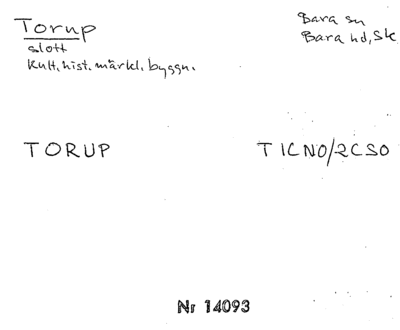 Torup
slott
Kult.hist.märkl.byggn.
Bara sn
Bara hd, Sk
TORUP
TICNO/2CSO
Nr 14093